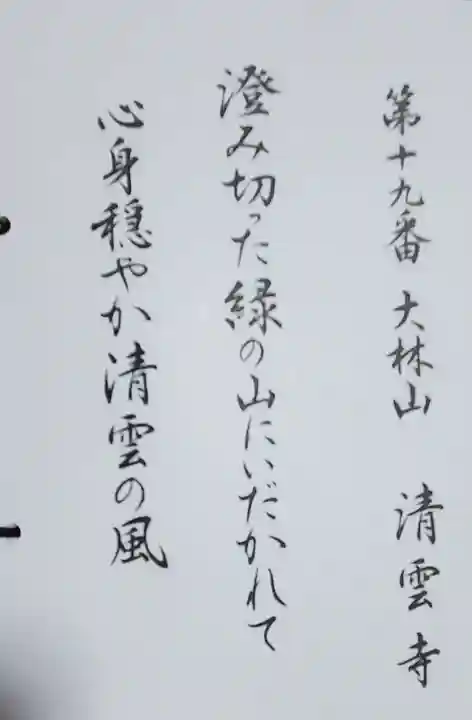 第十九番 大林山 清雲寺
澄み切った緑の山にいだかれて
心身穏やか清雲の風